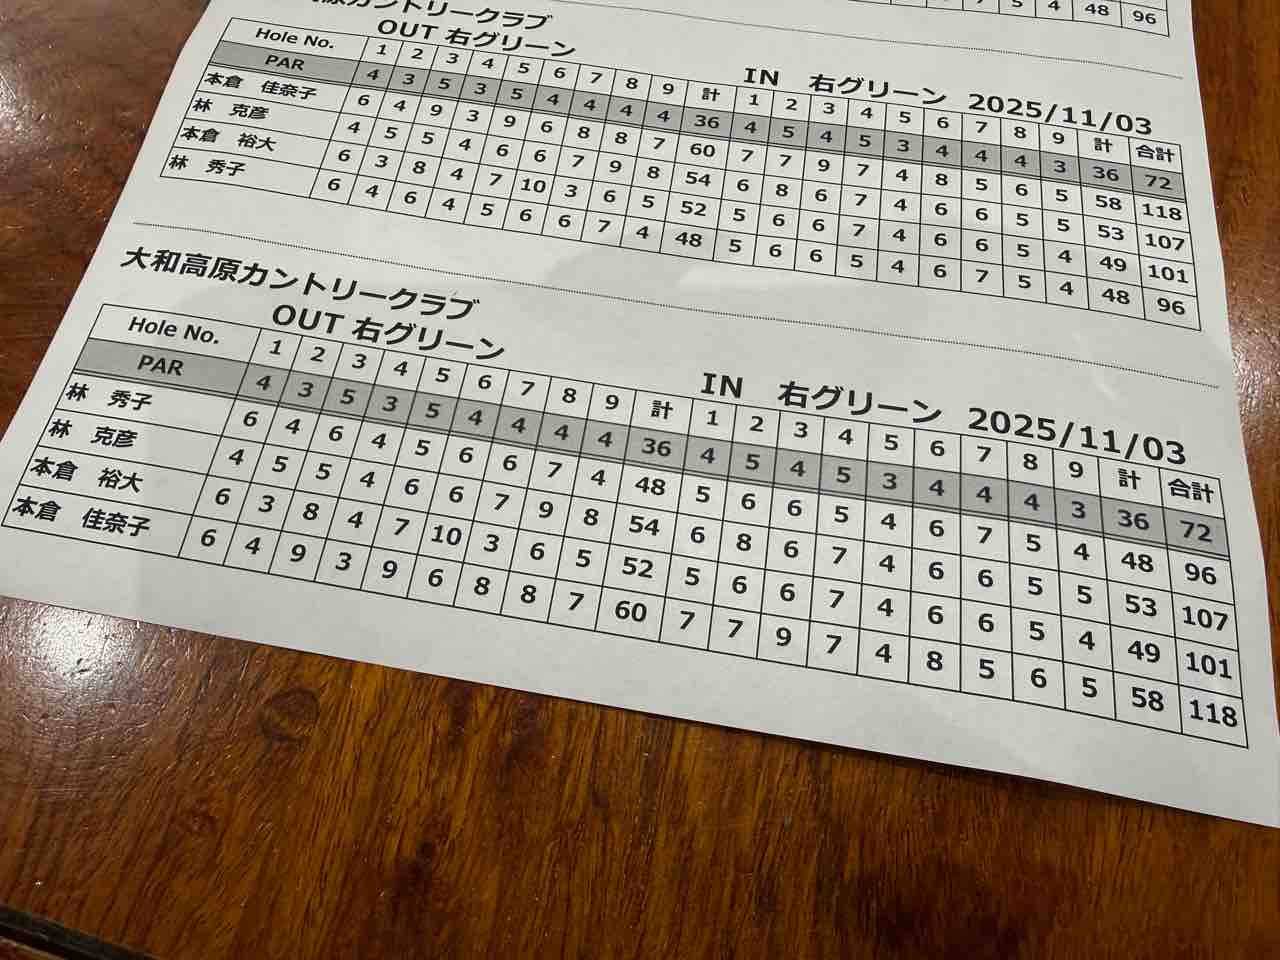 5 4 48 96
原カントリークラブ
OUT 右グリーン IN 右グリーン 2025/11/03
Hole No. 1 2 3 4 5 6 7 8 9 計 1 2 3 4 5 6 7 8 9 計 合計
PAR 4 3 5 3 5 4 4 4 4 36 4 5 4 5 3 4 4 4 3 36 72
本倉 佳奈子 6 4 9 3 9 6 8 8 7 60 7 7 9 7 4 8 5 6 5 58 118
林 克彦 4 5 5 4 6 6 7 9 8 54 6 8 6 7 4 6 6 5 5 53 107
本倉 裕大 6 3 8 4 7 10 3 6 5 52 5 6 6 7 4 6 6 5 4 49 101
林 秀子 6 4 6 4 5 6 6 7 4 48 5 6 6 5 4 6 7 5 4 48 96
大和高原カントリークラブ
OUT 右グリーン IN 右グリーン 2025/11/03
Hole No. 1 2 3 4 5 6 7 8 9 計 1 2 3 4 5 6 7 8 9 計 合計
PAR 4 3 5 3 5 4 4 4 4 36 4 5 4 5 3 4 4 4 3 36 72
林 秀子 6 4 6 4 5 6 6 7 4 48 5 6 6 5 4 6 7 5 4 48 96
林 克彦 4 5 5 4 6 6 7 9 8 54 6 8 6 7 4 6 6 5 5 53 107
本倉 裕大 6 3 8 4 7 10 3 6 5 52 5 6 6 7 4 6 6 5 4 49 101
本倉 佳奈子 6 4 9 3 9 6 8 8 7 60 7 7 9 7 4 8 5 6 5 58 118